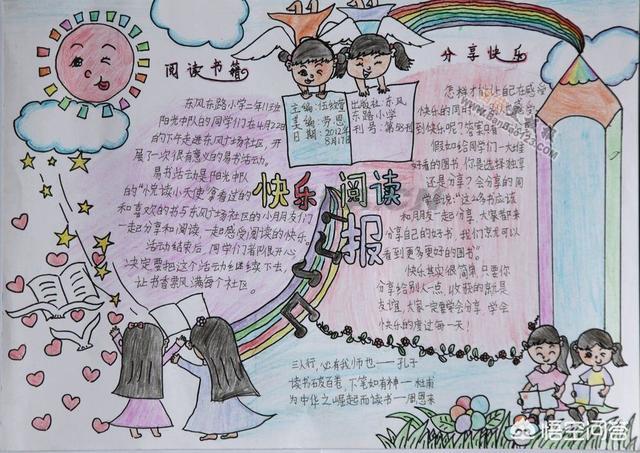 阅读书籍
东风东路小学二年11班
阳光中队的同学们在4月22日
的下午走进东风广场社区，开
展了一次很有意义的易书活动。
易书活动是阳光中队
的“悦读小天使”拿看过的
和喜欢的书与东风广场社区的小朋友们
一起分享和阅读，一起感受阅读的快乐。
活动结束后，同学们看限开心
决定要把这个活动继续下去，
让书香飘满每个社区。
主编：伍欣莹
美编：劳恩
日期：2012年
8月17日
出版社：东风
东路小学
刊号：第88刊
快乐阅读
报
分享快乐
怎样才能让自己在感受
快乐的同时
到快乐呢？
假如你给同学们一大堆
好看的图书，你是选择独享
还是分享？会分享的同
学会说：“这么多书应该
和朋友一起分享，大家都来
分享自己的好书，我们竟然可以
看到更多更好的图书”。
快乐其实很简单，只要你
分享给别人一点，收获的就是
友谊，大家一定要学会分享，学会
快乐的度过每一天！
三人行，必有我师也——孔子
读书破百卷，下笔如有神——杜甫
为中华之崛起而读书——周恩来
悟空问答